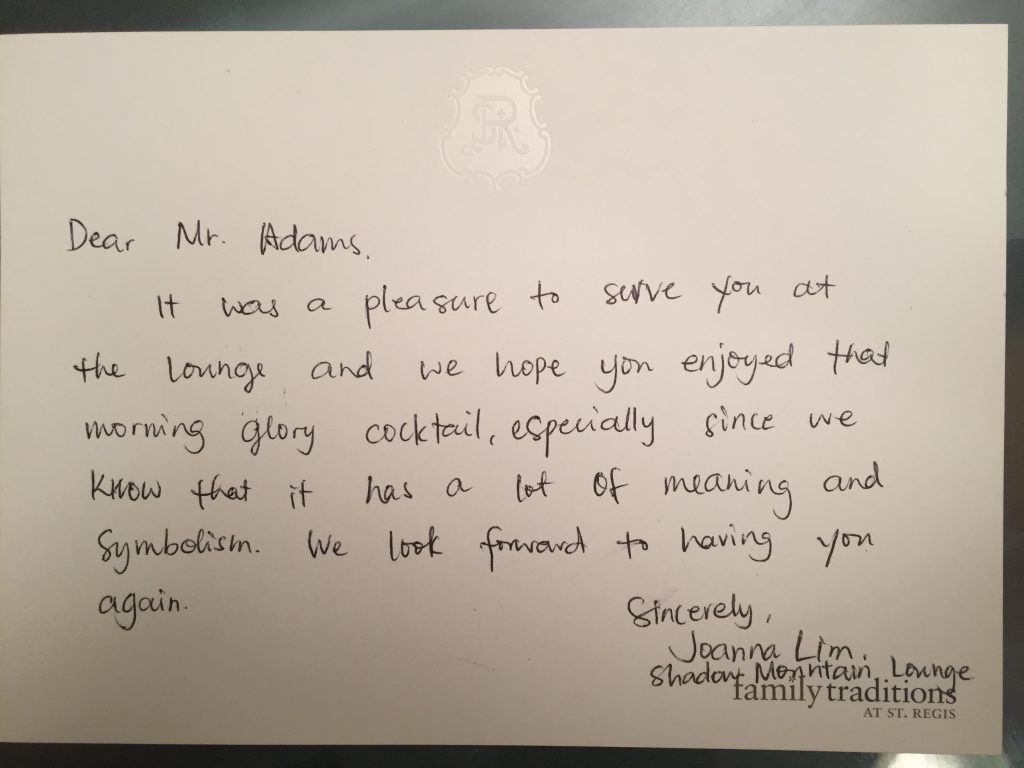 SR
Dear Mr. Adams,
It was a pleasure to serve you at
the lounge and we hope you enjoyed that
morning glory cocktail, especially since we
know that it has a lot of meaning and
symbolism. We look forward to having you
again.
Sincerely,
Joanna Lim.
Shadow Mountain Lounge
family traditions
AT ST. REGIS